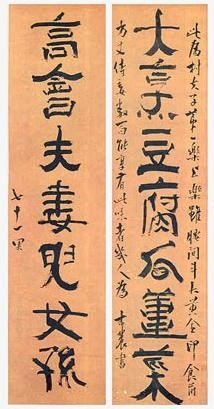 大烹豆腐瓜薑菜
此爲村夫子第一樂上樂雖腰間斗大黃金印食前
方丈侍妾數百能享有此味者幾人爲 杏農書
高會夫妻兒女孫
七十一果